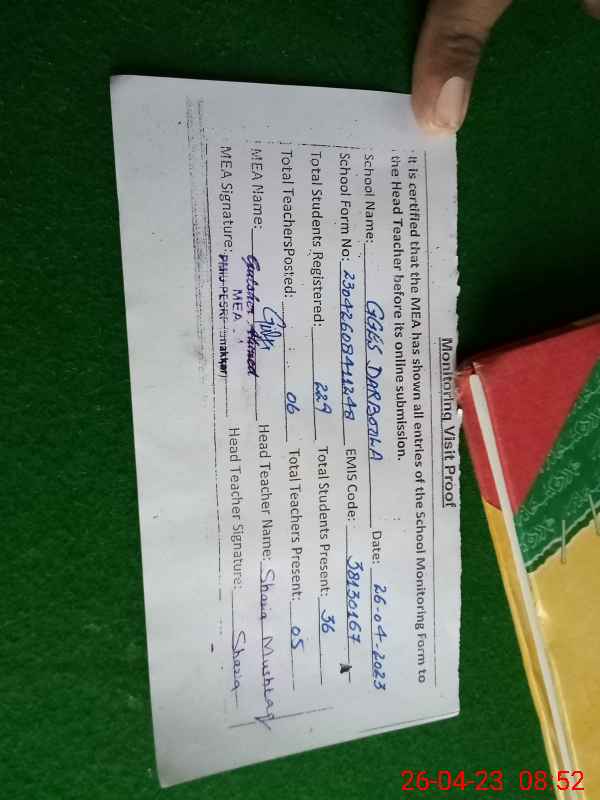 Monitoring Visit Proof
It is certified that the MEA has shown all entries of the School Monitoring Form to
the Head Teacher before its online submission.
School Name: GGES DARBOULA Date: 26-04-2023
School Form No: EMIS Code: 38130167
Total Students Registered: 229 Total Students Present: 36
Total TeachersPosted: 06 Total Teachers Present: 05
MEA Name: Gulsher Ahmed Head Teacher Name: Shazia Mushtaq
MEA Signature: MEA Head Teacher Signature: Shazia
26-04-23 08:52